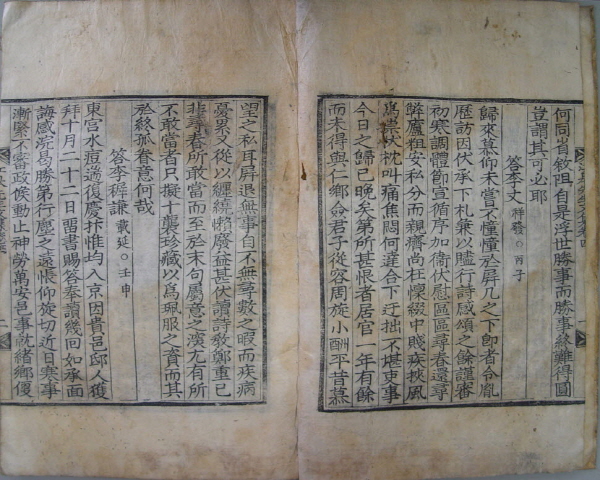 何同岑敘阻自是浮世勝事而勝事終難得圓
豈謂其可必耶
答李丈 祥發○丙子
歸來慕仰未嘗不憧憧於屏几之下卽者令胤
歷訪因伏承下札兼以贐行詩感頌之餘謹審
初寒調體節宣循序加衛伏慰區區尋春還尋
弊廬粗安私分而親癠尙在懍惙中賤疾挾風
爲祟伏枕叫痛焦悶何達台下迂拙不堪吏事
今日之歸已晩矣第所甚恨者居官一年有餘
而未得與仁鄕僉君子從容周旋小酬平昔慕
望之私耳屏退無事自不無尋數之暇而疾病
憂累又從以纒繞懶廢益甚伏讀詩敎鄭重已
非尋春所敢當而至於末句屬意之深尤有所
不敢當者只擬十襲珍藏以爲珮服之資而其
於終孤眷意何哉
答李穉謙 載延○壬申
東宮水痘適復慶抃惟均入京因貴邑邸人獲
拜十月二十二日留書賜答奉讀幾回如承面
誨感浣曷勝第行塵之遠悵仰旋切近日寒事
漸緊不審政候動止神勞萬安邑事就緖鄕便